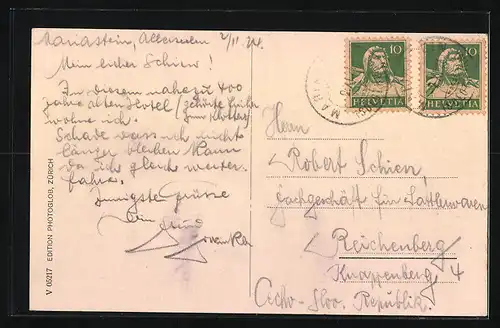 Mariastein, Allerseelen 2/11.
Mein lieber Schien!
In diesem nahezu 400
Jahre alten Hotel (gehörte früher
zum Kloster)
wohne ich.
Schade dass ich nicht
länger bleiben kann
da ich gleich weiter-
fahre.
Innigste Grüsse
Dein Freund
10
HELVETIA
10
HELVETIA
Herrn
Robert Schien,
Fachgeschäft für Sattlerwaren
Reichenberg
Knappenberg 4
Čecho-Slov. Republik.
V 05217 EDITION PHOTOGLOB, ZÜRICH